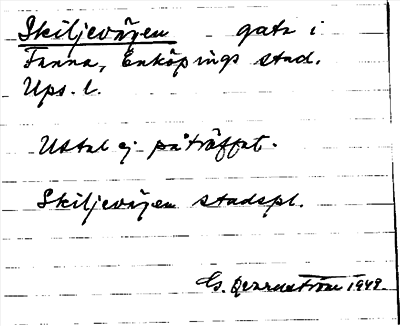 Skiljevägen gata i
Fanna, Enköpings stad.
Ups. l.
Uttal ej påträffat.
Skiljevägen stadspl.
1949.